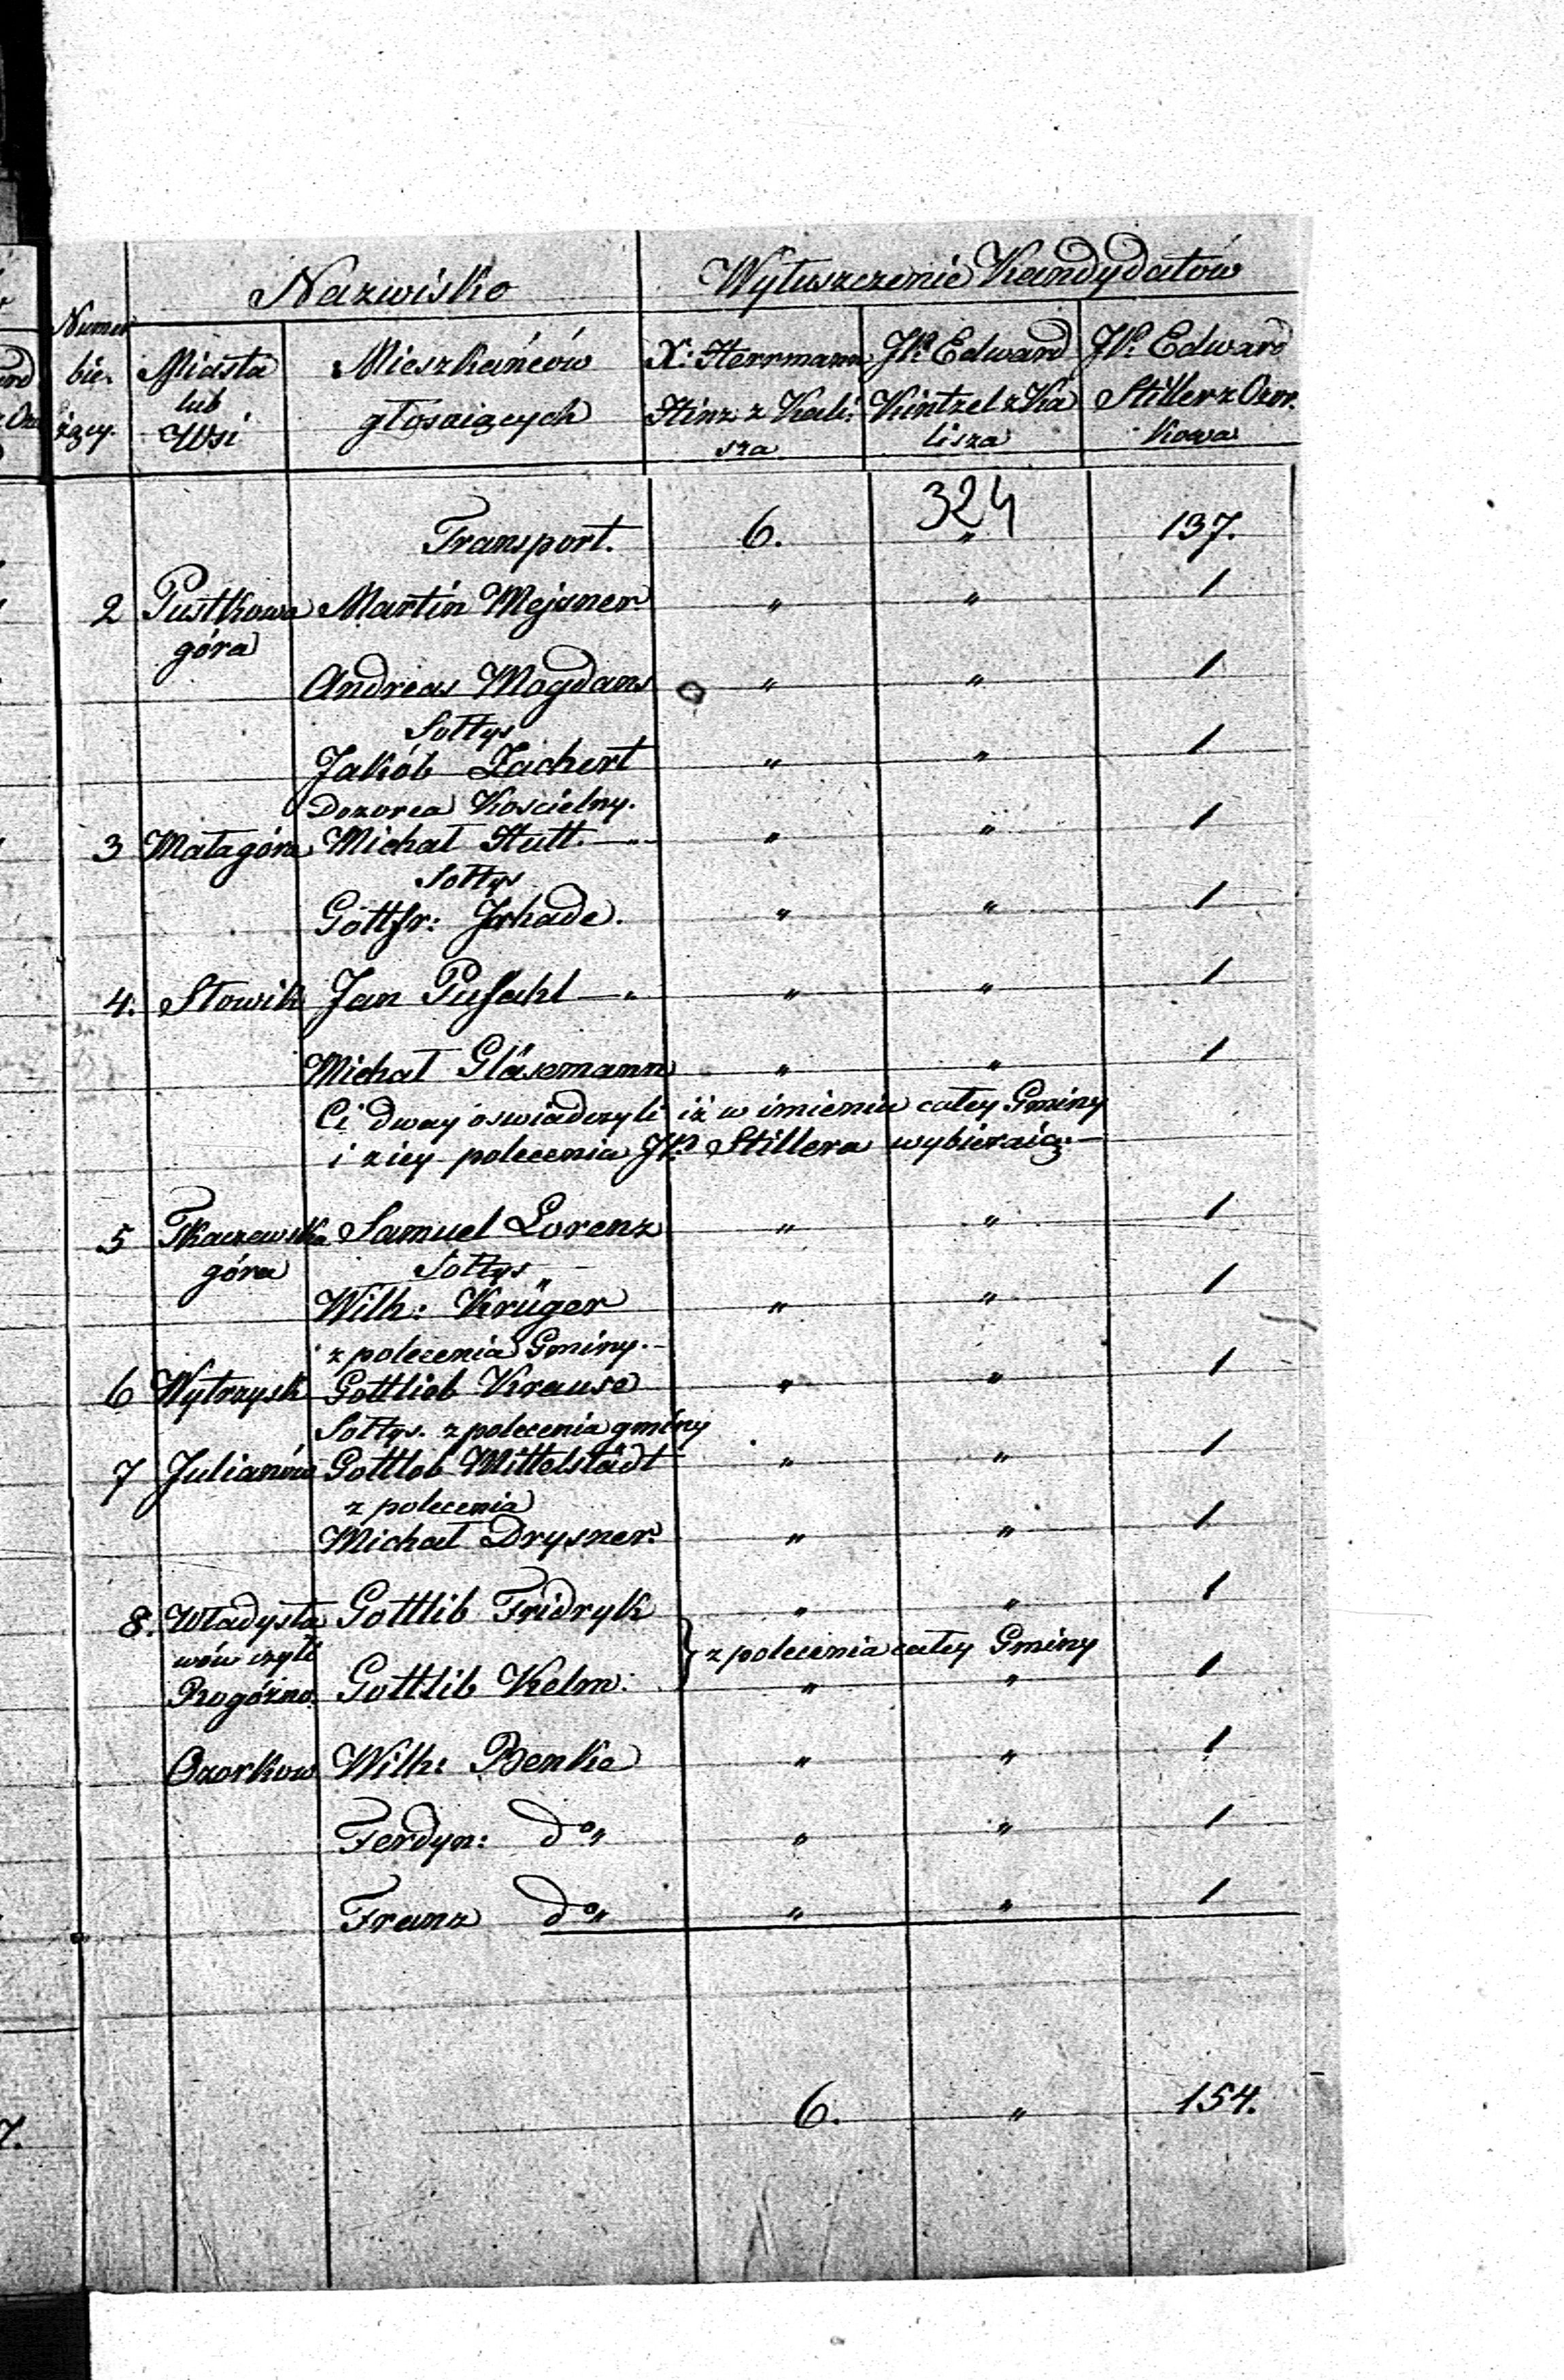 Nazwisko Wyłuszczenie Kandydatów
Numer bie- żący.
Miasta lub Wsi
Mieszkańców głosuiących
X: Herrmann Hinz z Kali: sza
JP. Edward Kintzel z Ka lisza
JP. Edward Stiller z Ozor. kowa
324
Transport. 6. " 137.
2 Pustkowa Martin Mejsner " " 1
góra
Andreas Mogdans " " 1
Sołtys
Jakób Zachert " " 1
Dozorca Koscielny.
3 Małagóra Michał Hutt. " " 1
Sołtys
Gottfr: " " 1
4. Słowik Jan Pufahl " " 1
Michał Gläsemann " " 1
Ci dway oswiadczyli iż w imieniu całey Gminy
i z iey polecenia JP. Stillera wybieraią.
5 Tkaczewska Samuel Lorenz " " 1
góra Sołtys
Wilh: Krüger " " 1
z polecenia Gminy.
6 Wytrzysk Gottlieb Krause " " 1
Sołtys. z polecenia gminy
7 Julianów Gottlob Mittelstädt " " 1
z polecenia
Michał Drysner. " " 1
8. Władysła Gottlib Fridryk " " 1
wów czyli } z polecenia całey Gminy
Rogóżno. Gottlib Kelm. " " 1
Ozorkow Wilh: Benke " " 1
Ferdyn: do " " 1
Franz do " " 1
6. " 154.
7.